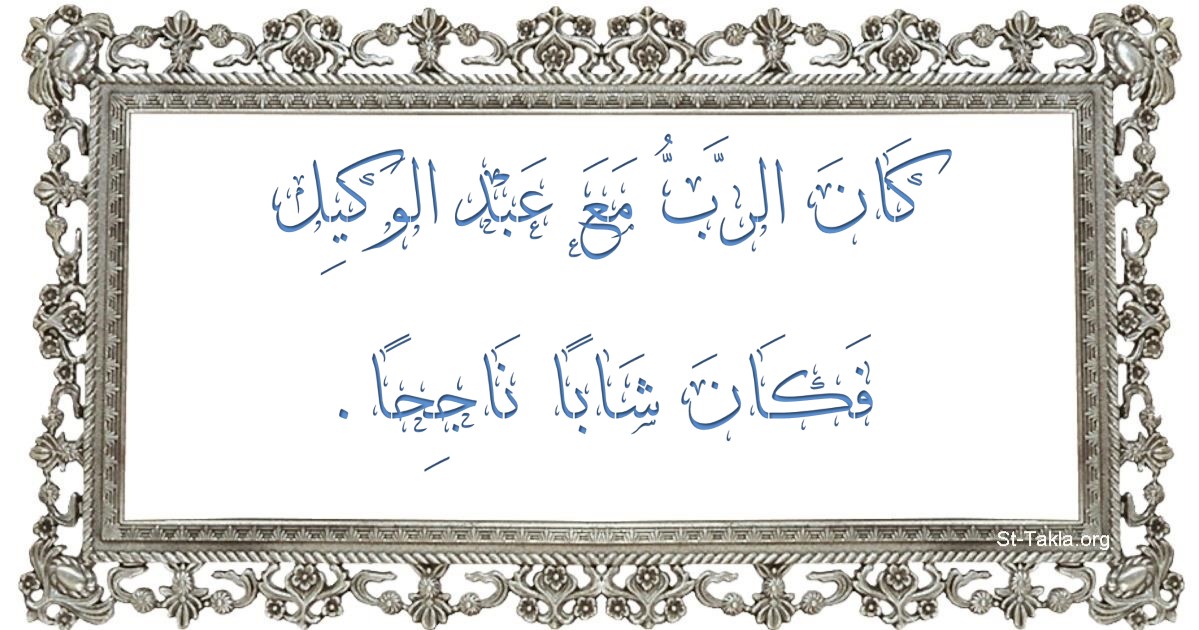 كَانَ الرَّبُّ مَعَ عَبْد الوَكِيِل
فَكَانَ شَابًا نَاجِحًا .
St-Takla.org